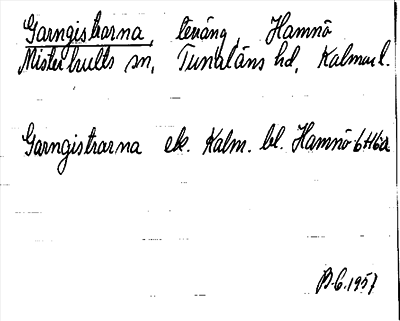 Garngistrarna, teräng, Hamnö
Misterhults sn, Tunaläns hd, Kalmar l.
Garngistrarna ek. Kalm. bl. Hamnö 6H6a
B.G. 1957